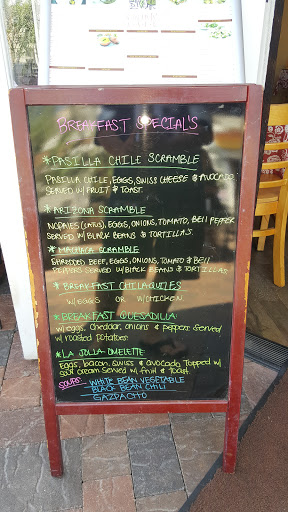 BREAKFAST SPECIAL'S
*PASILLA CHILE SCRAMBLE
PASILLA CHILE, EGGS, SWISS CHEESE & AVOCADO
SERVED W/ FRUIT & TOAST.
*ARIZONA SCRAMBLE
NOPALES (CACTUS), EGGS, ONIONS, TOMATO, BELL PEPPER
SERVED W/ BLACK BEANS & TORTILLAS.
*MACHACA SCRAMBLE
SHREDDED BEEF, EGGS, ONIONS, TOMATO & BELL
PEPPERS SERVED W/ BLACK BEANS & TORTILLAS
*BREAKFAST CHILAQUILES
W/ EGGS OR W/ CHICKEN.
*BREAKFAST QUESADILLA:
w/ eggs, cheddar, onions & peppers. Served
w/ roasted potatoes
*LA JOLLA OMELETTE
Eggs, bacon, swiss & avocado, topped w/
sour cream. Served w/ fruit & toast.
SOUPS: - WHITE BEAN VEGETABLE
BLACK BEAN CHILI
GAZPACHO